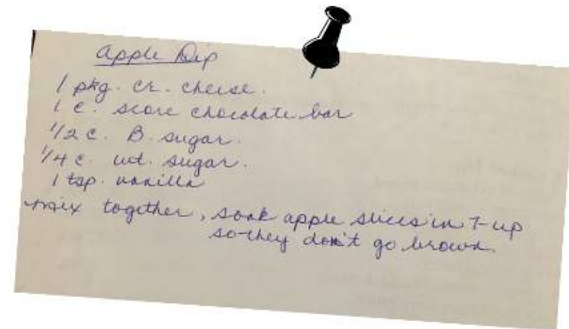 Apple Dip
1 pkg. cr. cheese.
1 c. score chocolate bar
1/2 c. B. sugar.
1/4 c. wt. sugar.
1 tsp. vanilla
mix together, soak apple slices in 7-up
so they don't go brown